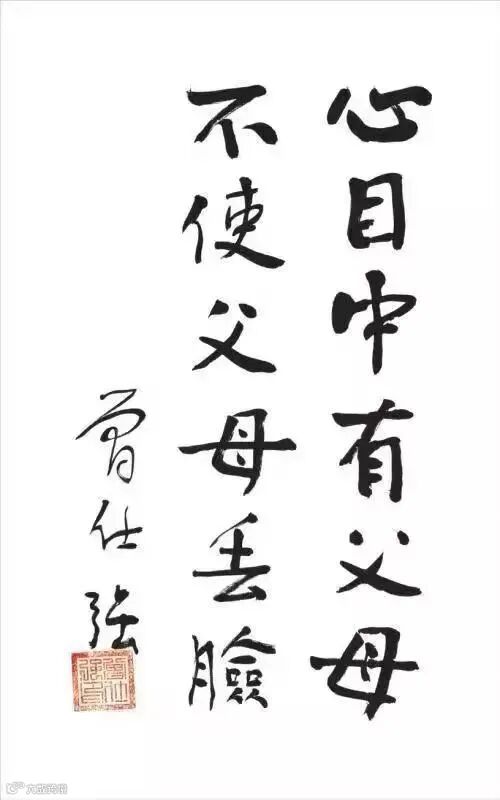 心目中有父母
不使父母丢臉
曾仕强